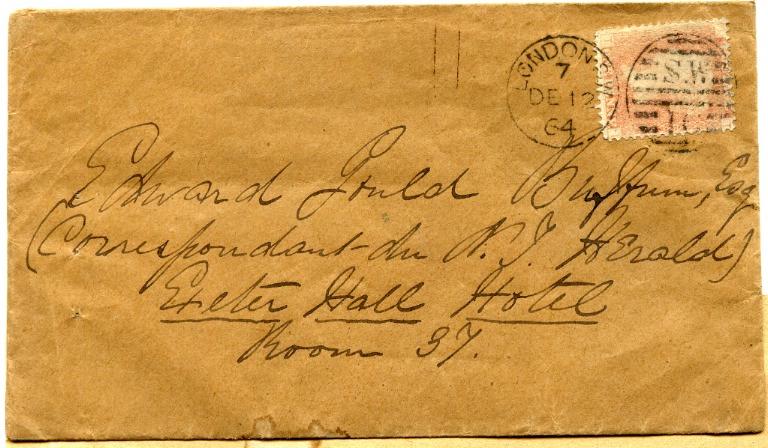 LONDON·S.W
7
DE 12
64
S.W
Edward Gould Buffum, Esq
(Correspondant du N. Y. Herald)
Exeter Hall Hotel
Room 37.